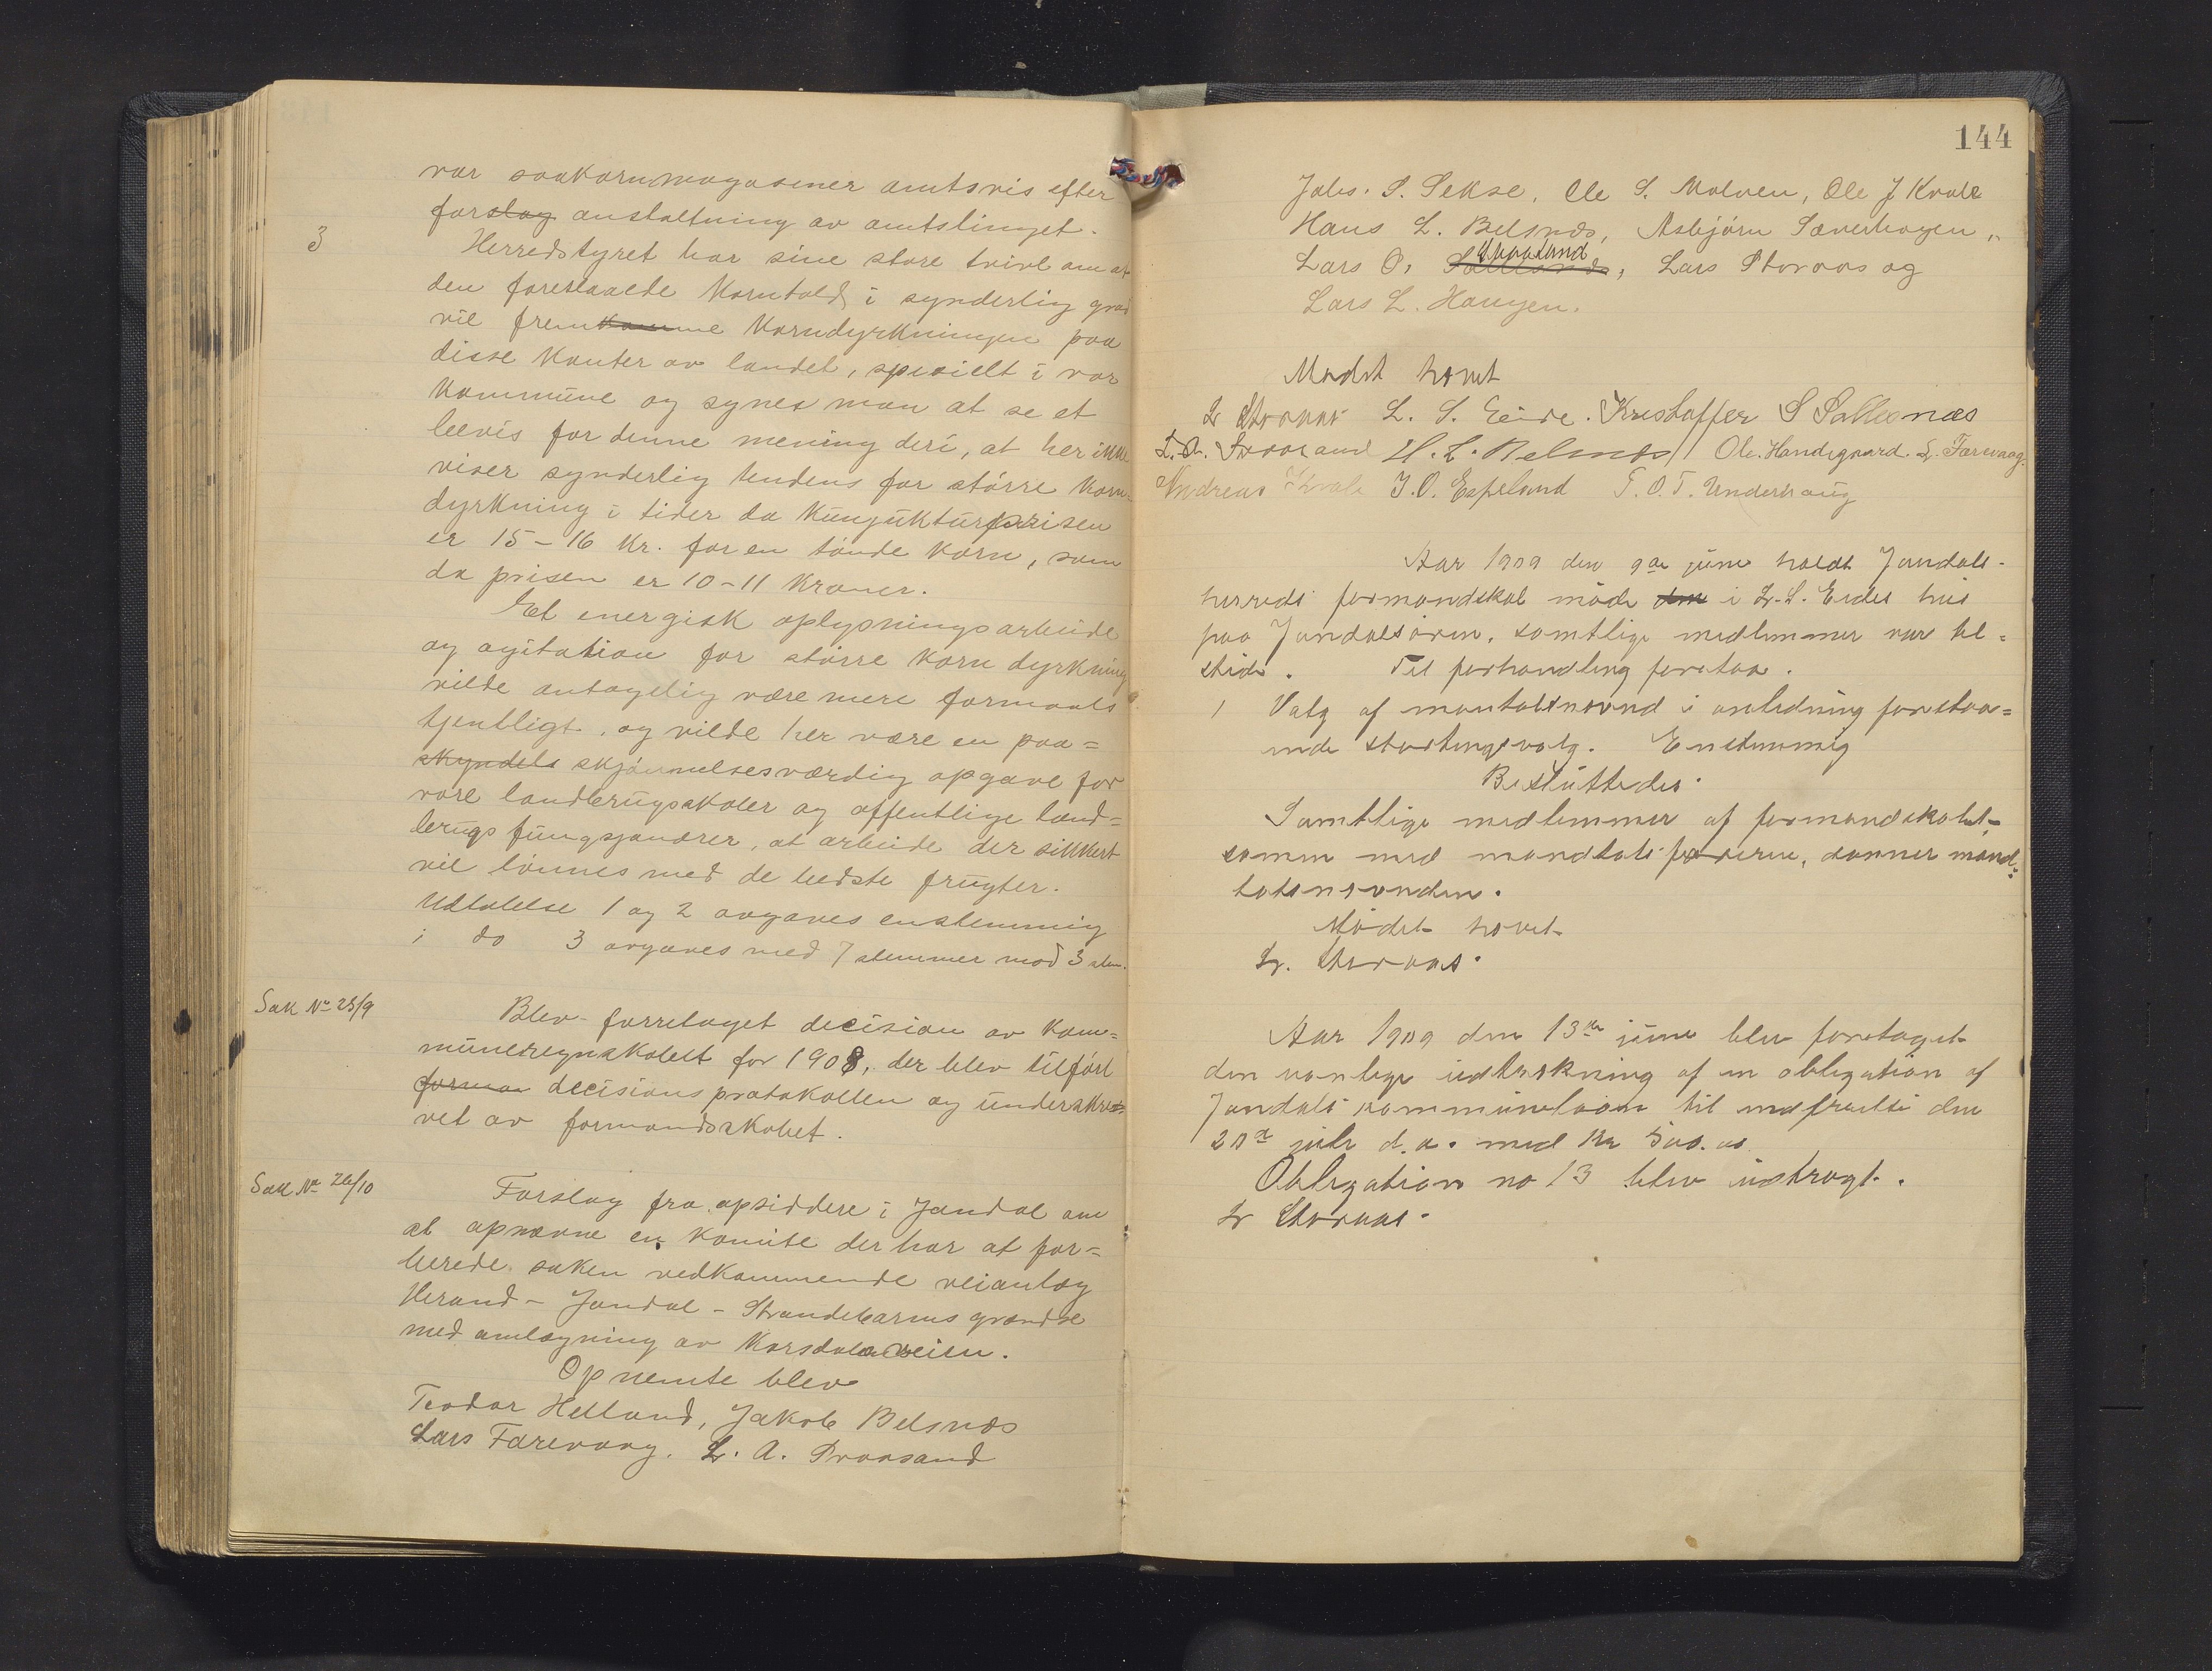 var saakornmagasiner amtsvis efter
forslag anstaltning av amtstinget.
3
Herredstyret har sine store tvivl om at
den foreslaaede Korntold i synderlig grad
vil fremkomme Korndyrkningen paa
disse Kanter av landet, specielt i vor
Kommune og synes man at se et
bevis for denne mening deri, at her ikke
viser synderlig tendens for større Korn-
dyrkning i tider da Kunjukturprisen
er 15-16 Kr. for en tønde Korn, som
da prisen er 10-11 Kroner.
Et energisk oplysningsarbeide
og agitation for större Korn dyrkning
vilde antagelig være mere formaals
tjenlligt, og vilde her være en paa=
skyndels skjønnelsesværdig opgave for
vore landbrugsskoler og offentlige land=
brugs fungsjonærer, at arbeide der sikkert
vil lönnes med de bedste frugter.
Udtalelse 1 og 2 avgaves enstemmig
i do 3 avgaves med 7 stemmer mod 3 stem.
Sak No 25/9
Blev forretaget decision av Kom=
muneregnskabet for 1908, der blev tilført
decisionsprotokollen og underskre=
vet av formandskabet.
Sak No 26/10
Forslag fra opsiddere i Jondal om
at opnævne en Komite der har at for=
berede saken vedkommende veianlæg
Herand - Jondal - Strandebarms grændse
med omlægning av Korsdalsveien.
Opnemte blev
Teodor Helland, Jakob Belsnæs
Lars Farevaag, L. A. Traasand
144
Johs. S. Sekse, Ole S. Molven, Ole J Kvale
Hans L. Belsnæs, Asbjørn Sæverhagen,
Lars O. , Lars Storaas og
Lars L. Haugen.
Mødet hævet
Lr Storaas L. S. Eide. Kristoffer S Solesnæs
L. A. Traasand H. L. Belsnæs Ole. Handegaard L. Farevaag.
Andreas Kvale J. O. Espeland T. O. T. Underhaug
Aar 1909 den 9de juni holdt Jondals-
herreds formandskab møde den i Lr. S. Eides hus
paa Jondalsøren. samtlige medlemmer var til=
stede. Til forhandling foretoa.
1 Valg af mantalsnævnd i anledning forestaa=
ende stortingsvalg. Enstemmig
Besluttedes.
Samtlige medlemmer af formandskabet,
somm med mandtalsførerne, danner mand=
talsnævnden.
Mødet hævet
Lr. Storaas.
Aar 1909 den 13de juni blev foretaget
den vanlige udtrækning af en obligation af
Jondals kommunelaan til indfrielse den
20de juli d.a. med Kr 500.00
Obligation no 13 blev udtragt.
Lr Storaas.